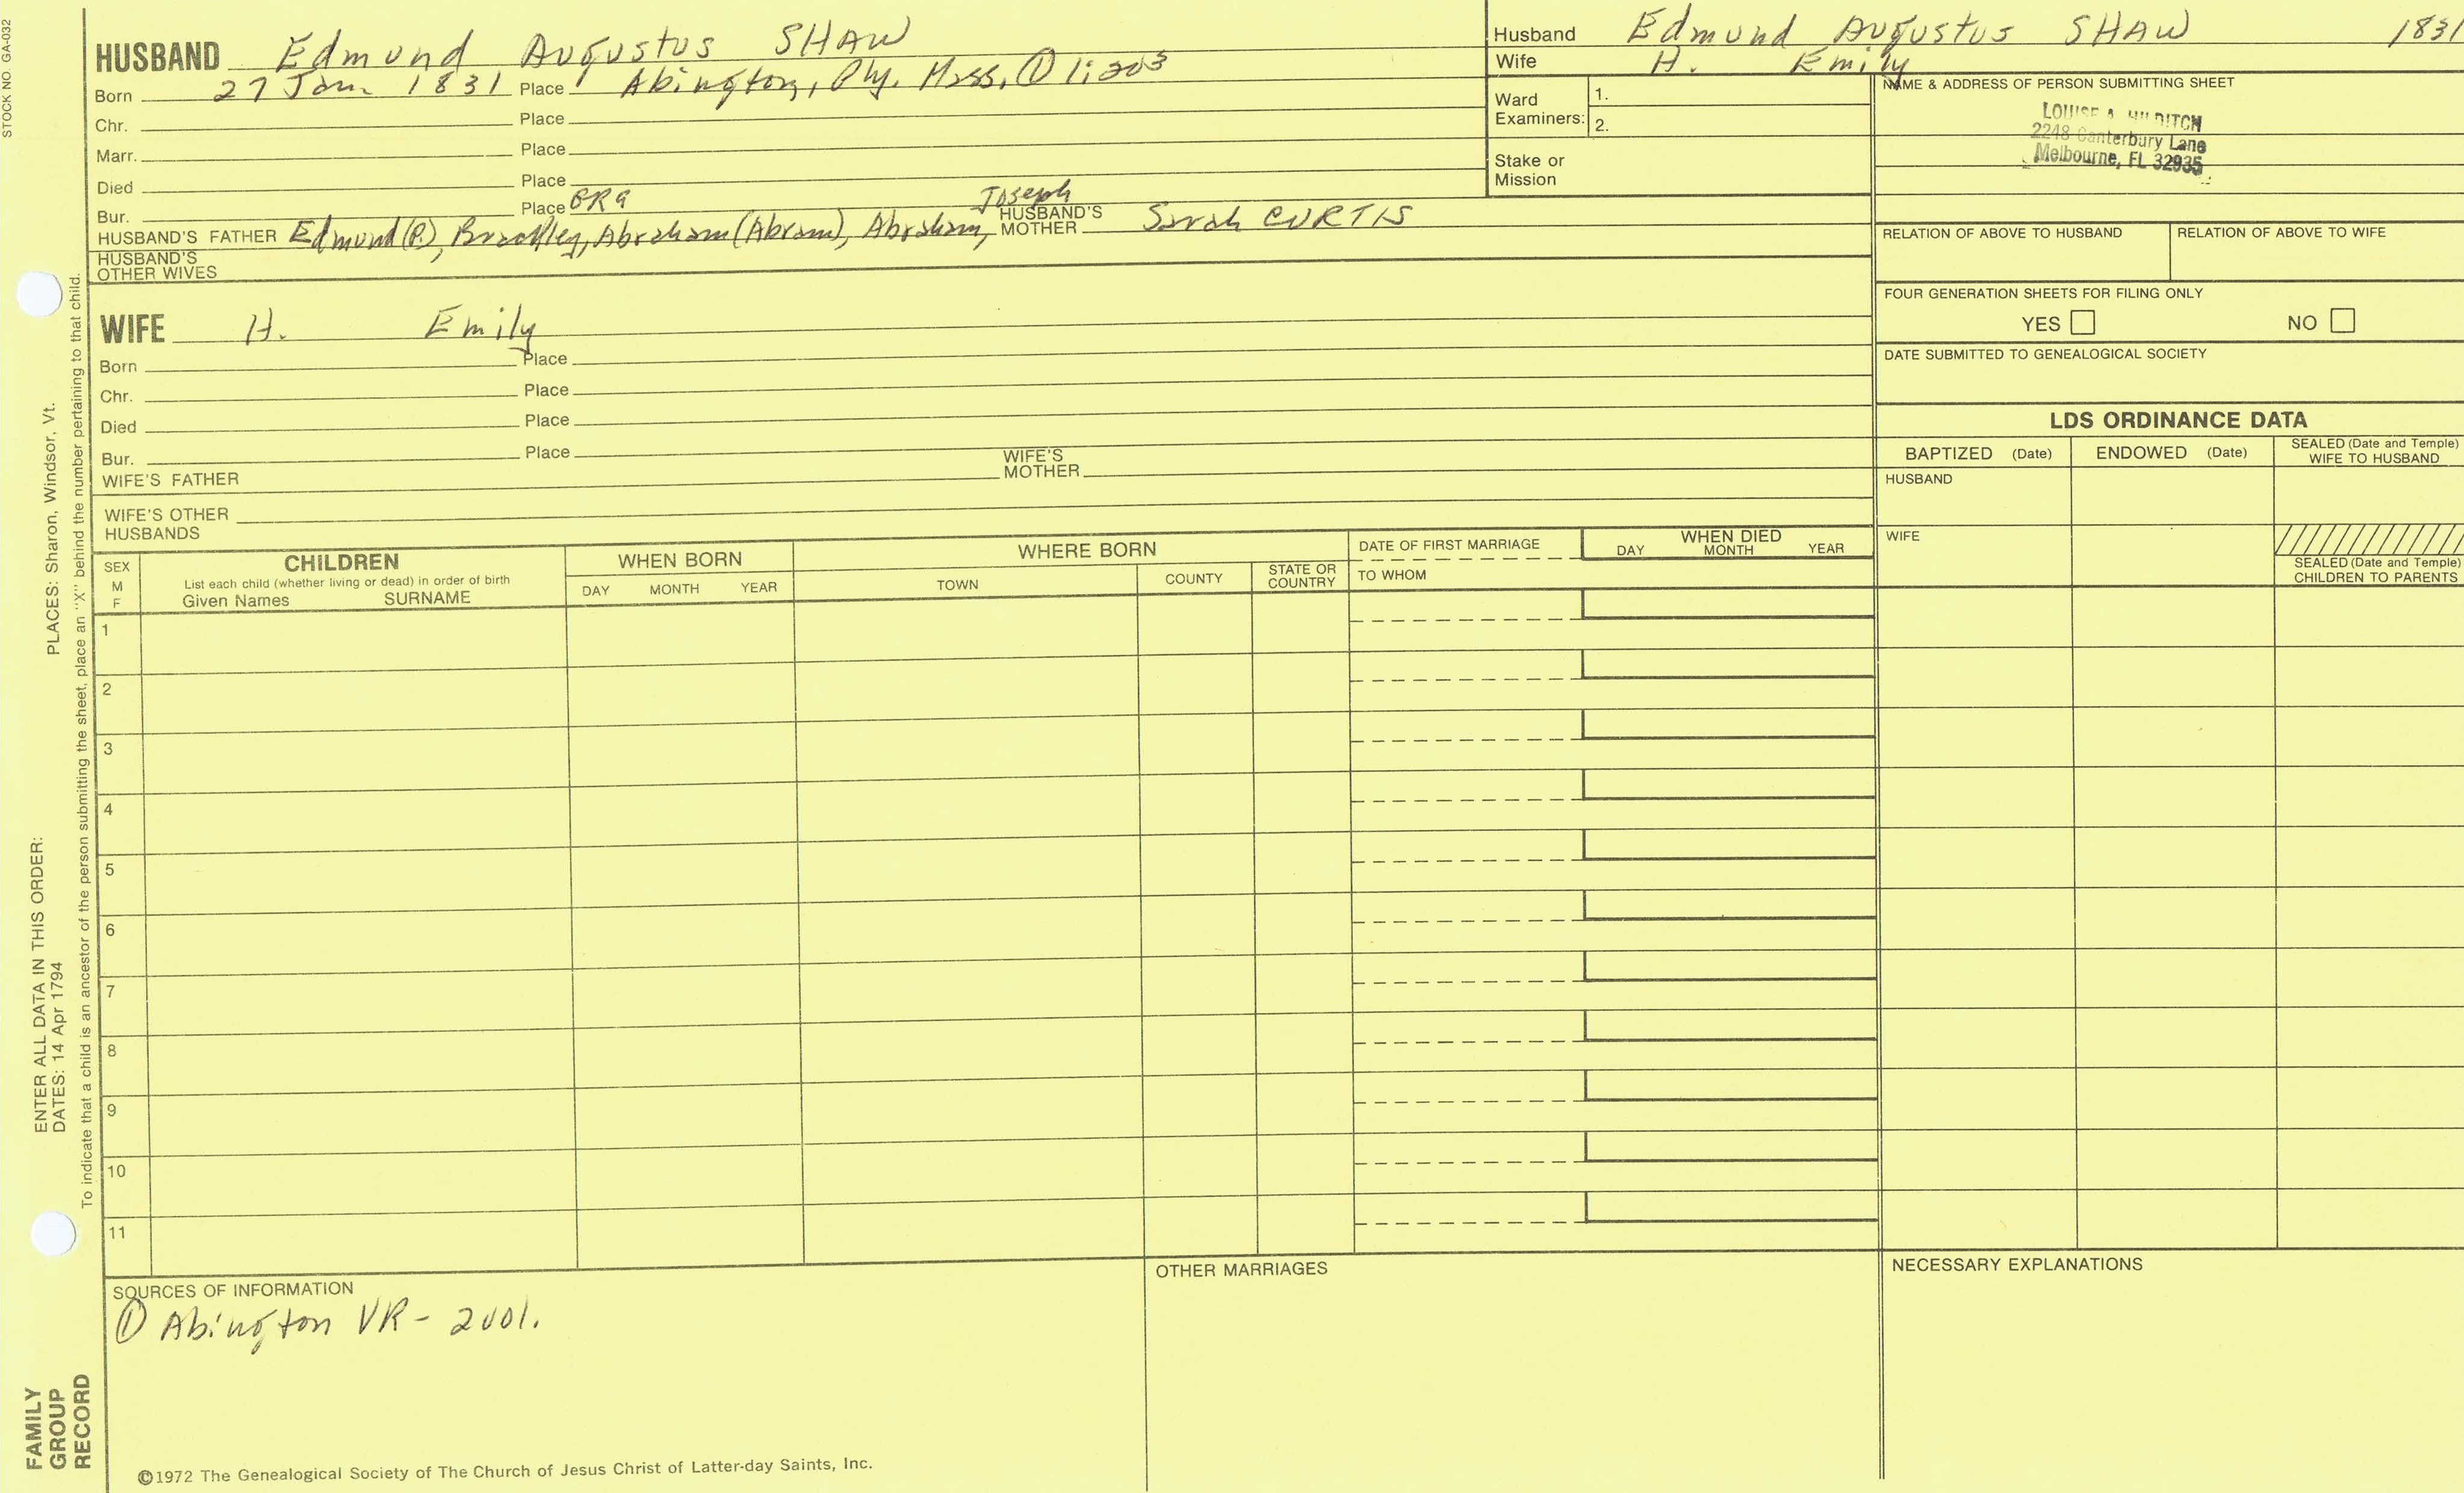 STOCK NO. GA-032
HUSBAND Edmund Augustus SHAW
Born 27 Jan 1831 Place Abington, Ply. Mass, ① 1:203
Chr. Place
Marr. Place
Died Place
Bur. Place
HUSBAND'S FATHER Edmund (P.), Bradley, Abraham (Abram), Abraham, Joseph HUSBAND'S MOTHER Sarah CURTIS
HUSBAND'S OTHER WIVES
WIFE H. Emily
Born Place
Chr. Place
Died Place
Bur. Place
WIFE'S FATHER WIFE'S MOTHER
WIFE'S OTHER HUSBANDS
Husband Edmund Augustus SHAW 1831
Wife H. Emily
Ward Examiners: 1.
2.
Stake or Mission
NAME & ADDRESS OF PERSON SUBMITTING SHEET
LOUISE A
2248 Canterbury Lane
Melbourne, FL 32935
RELATION OF ABOVE TO HUSBAND RELATION OF ABOVE TO WIFE
FOUR GENERATION SHEETS FOR FILING ONLY
YES NO
DATE SUBMITTED TO GENEALOGICAL SOCIETY
LDS ORDINANCE DATA
BAPTIZED (Date) ENDOWED (Date) SEALED (Date and Temple) WIFE TO HUSBAND
HUSBAND
WIFE
SEALED (Date and Temple) CHILDREN TO PARENTS
SEX M F
CHILDREN
List each child (whether living or dead) in order of birth
Given Names SURNAME
WHEN BORN
DAY MONTH YEAR
WHERE BORN
TOWN COUNTY STATE OR COUNTRY
DATE OF FIRST MARRIAGE
TO WHOM
WHEN DIED
DAY MONTH YEAR
1
2
3
4
5
6
7
8
9
10
11
SOURCES OF INFORMATION
① Abington VR - 2001.
OTHER MARRIAGES
NECESSARY EXPLANATIONS
©1972 The Genealogical Society of The Church of Jesus Christ of Latter-day Saints, Inc.
FAMILY
GROUP
RECORD
ENTER ALL DATA IN THIS ORDER:
DATES: 14 Apr 1794
PLACES: Sharon, Windsor, Vt.
To indicate that a child is an ancestor of the person submitting the sheet, place an "X" behind the number pertaining to that child.